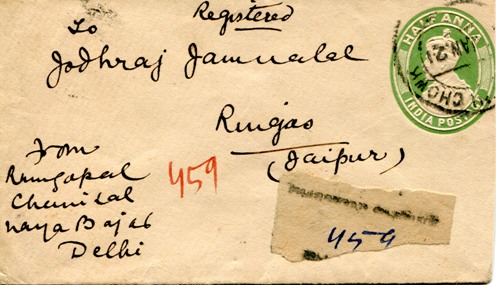 Registered
To
Jodhraj Jamnalal
Ringas
(Jaipur)
From
Rungopal
Chunilal
naya Bajar
Delhi
459
459
HALF ANNA
INDIA POSTAGE
CHOWK
JAN 21